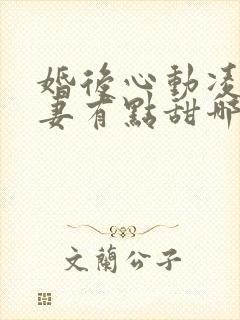 婚後心動凌
妻有點甜哪
文蘭公子